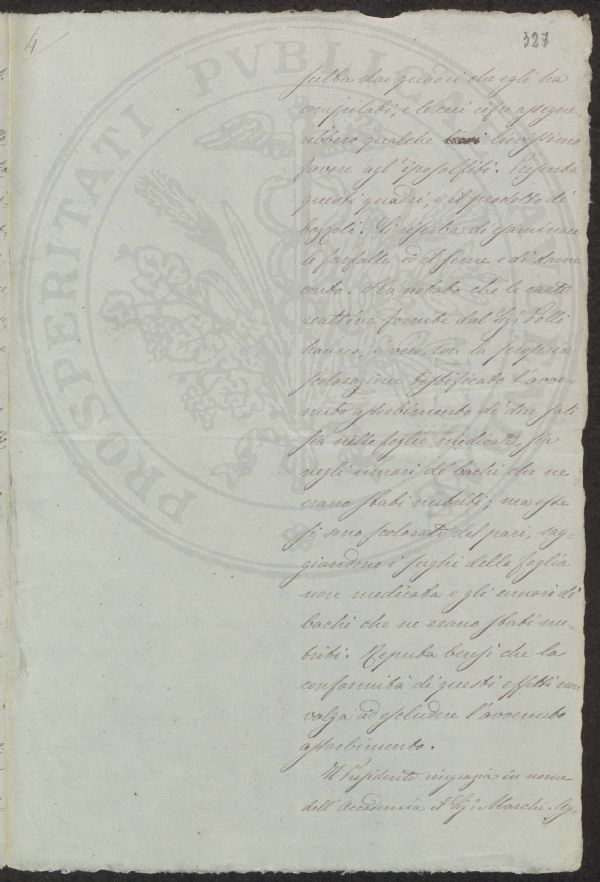 4
327
sulta dai quadri che egli ha
compilati, e le cui cifre assegne-
rebbero qualche lievissimo
favore agl' iposolfiti. Presenta
questi quadri, e il prodotto di
bozzoli. Si riserba di esaminare
le farfalle, ed il seme e di darne
conto. Ha notato che le carte
reattive fornite dal Sig.r Polli
hanno, è vero, con la propria
scolorazione testificato l'avve-
nuto assorbimento di due sali
sia nelle foglie medicate, sia
negli umori de' bachi che ne
erano stati nutriti; ma esse
si sono scolorate del pari, sag-
giandone i sughi della foglia
non medicata e gli umori di
bachi che ne erano stati nu-
triti. Reputa bensì che la
conformità di questi effetti non
valga ad escludere l'avvenuto
assorbimento.
Il Presidente ringrazia in nome
dell' Accademia il Sig.r March.
PROSPERITATI PVBLICAE